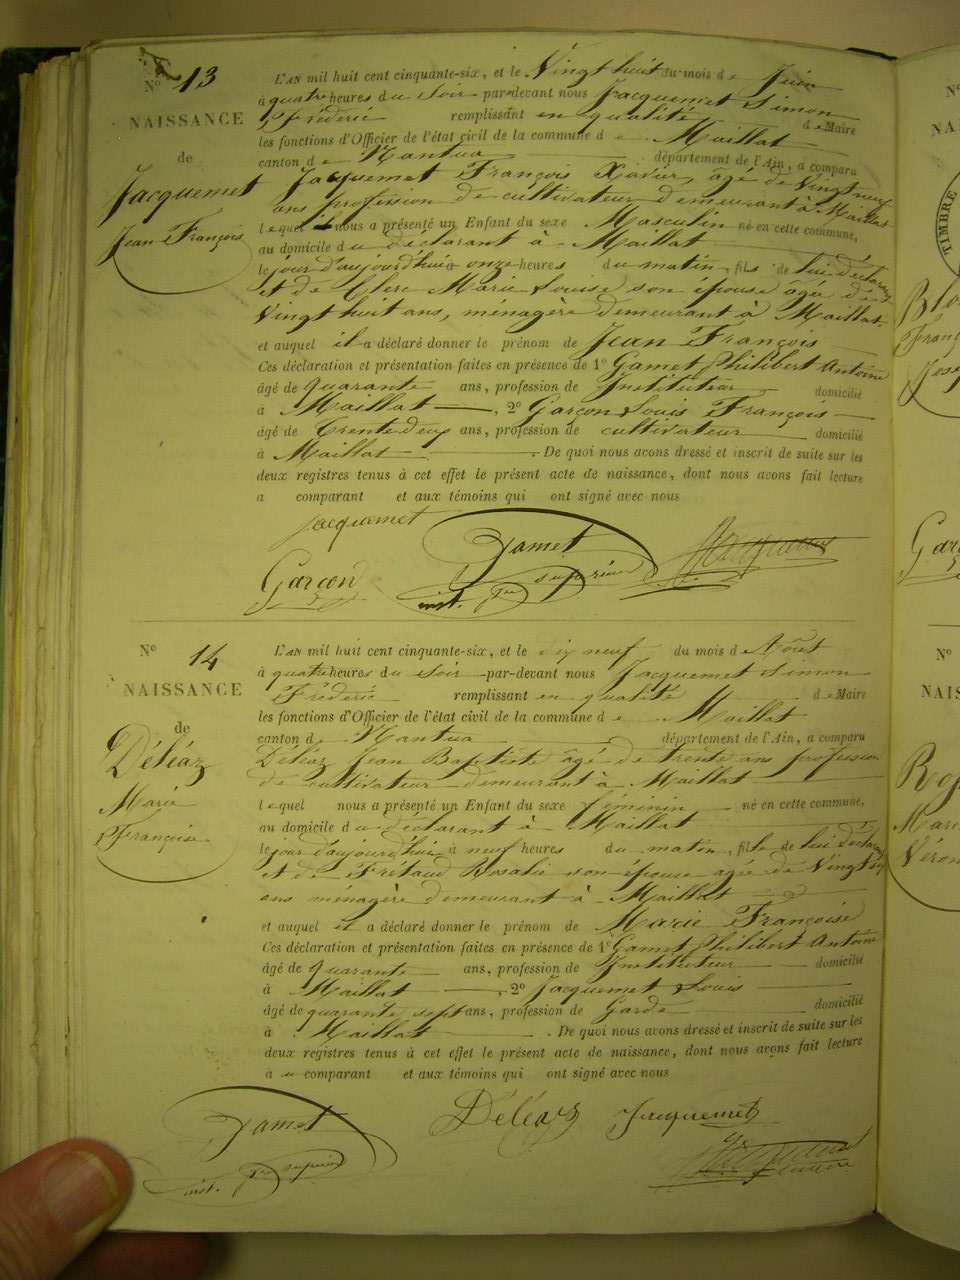 N° 13
NAISSANCE
de
Jacquemet
Jean François
L'AN mil huit cent cinquante-six, et le Vingt huit du mois de Juin
à quatre heures du soir par-devant nous Jacquemet Simon
Fréderic remplissant en qualité de Maire
les fonctions d'Officier de l'état civil de la commune de Maillat
canton de Nantua département de l'Ain, a comparu
Jacquemet François Xavier, agé de Vingt neuf
ans profession de cultivateur demeurant à Maillat
lequel nous a présenté un Enfant du sexe Masculin né en cette commune,
au domicile du déclarant à Maillat
le jour d'aujourd'hui à onze heures du matin, fils de lui déclarant
et de Clerc Marie Louise son épouse âgée de
Vingt huit ans, ménagère demeurant à Maillat
et auquel il a déclaré donner le prénom de Jean François
Ces déclaration et présentation faites en présence de 1° Gamet Philibert Antoine
âgé de quarante ans, profession de Instituteur domicilié
à Maillat , 2° Garçon Louis François
âgé de Trente deux ans, profession de cultivateur domicilié
à Maillat . De quoi nous avons dressé et inscrit de suite sur les
deux registres tenus à cet effet le présent acte de naissance, dont nous avons fait lecture
a comparant et aux témoins qui ont signé avec nous
Jacquemet
Gamet
Garçon
inst. supérieur
N° 14
NAISSANCE
de
Déléaz
Marie
Françoise
L'AN mil huit cent cinquante-six, et le dix neuf du mois de Août
à quatre heures du soir par-devant nous Jacquemet Simon
Fréderic remplissant en qualité de Maire
les fonctions d'Officier de l'état civil de la commune de Maillat
canton de Nantua département de l'Ain, a comparu
Déléaz Jean Baptiste âgé de trente ans profession
de cultivateur demeurant à Maillat
lequel nous a présenté un Enfant du sexe féminin né en cette commune,
au domicile du déclarant à Maillat
le jour d'aujourd'hui à neuf heures du matin, fille de lui déclarant
et de Rosalie son épouse agée de Vingt
ans ménagère demeurant à Maillat
et auquel il a déclaré donner le prénom de Marie Françoise
Ces déclaration et présentation faites en présence de 1° Gamet Philibert Antoine
âgé de quarante ans, profession de Instituteur domicilié
à Maillat , 2° Jacquemet Louis
âgé de quarante sept ans, profession de Garde domicilié
à Maillat . De quoi nous avons dressé et inscrit de suite sur les
deux registres tenus à cet effet le présent acte de naissance, dont nous avons fait lecture
a u comparant et aux témoins qui ont signé avec nous
Gamet
Déléaz
Jacquemet
inst. supérieur
TIMBRE